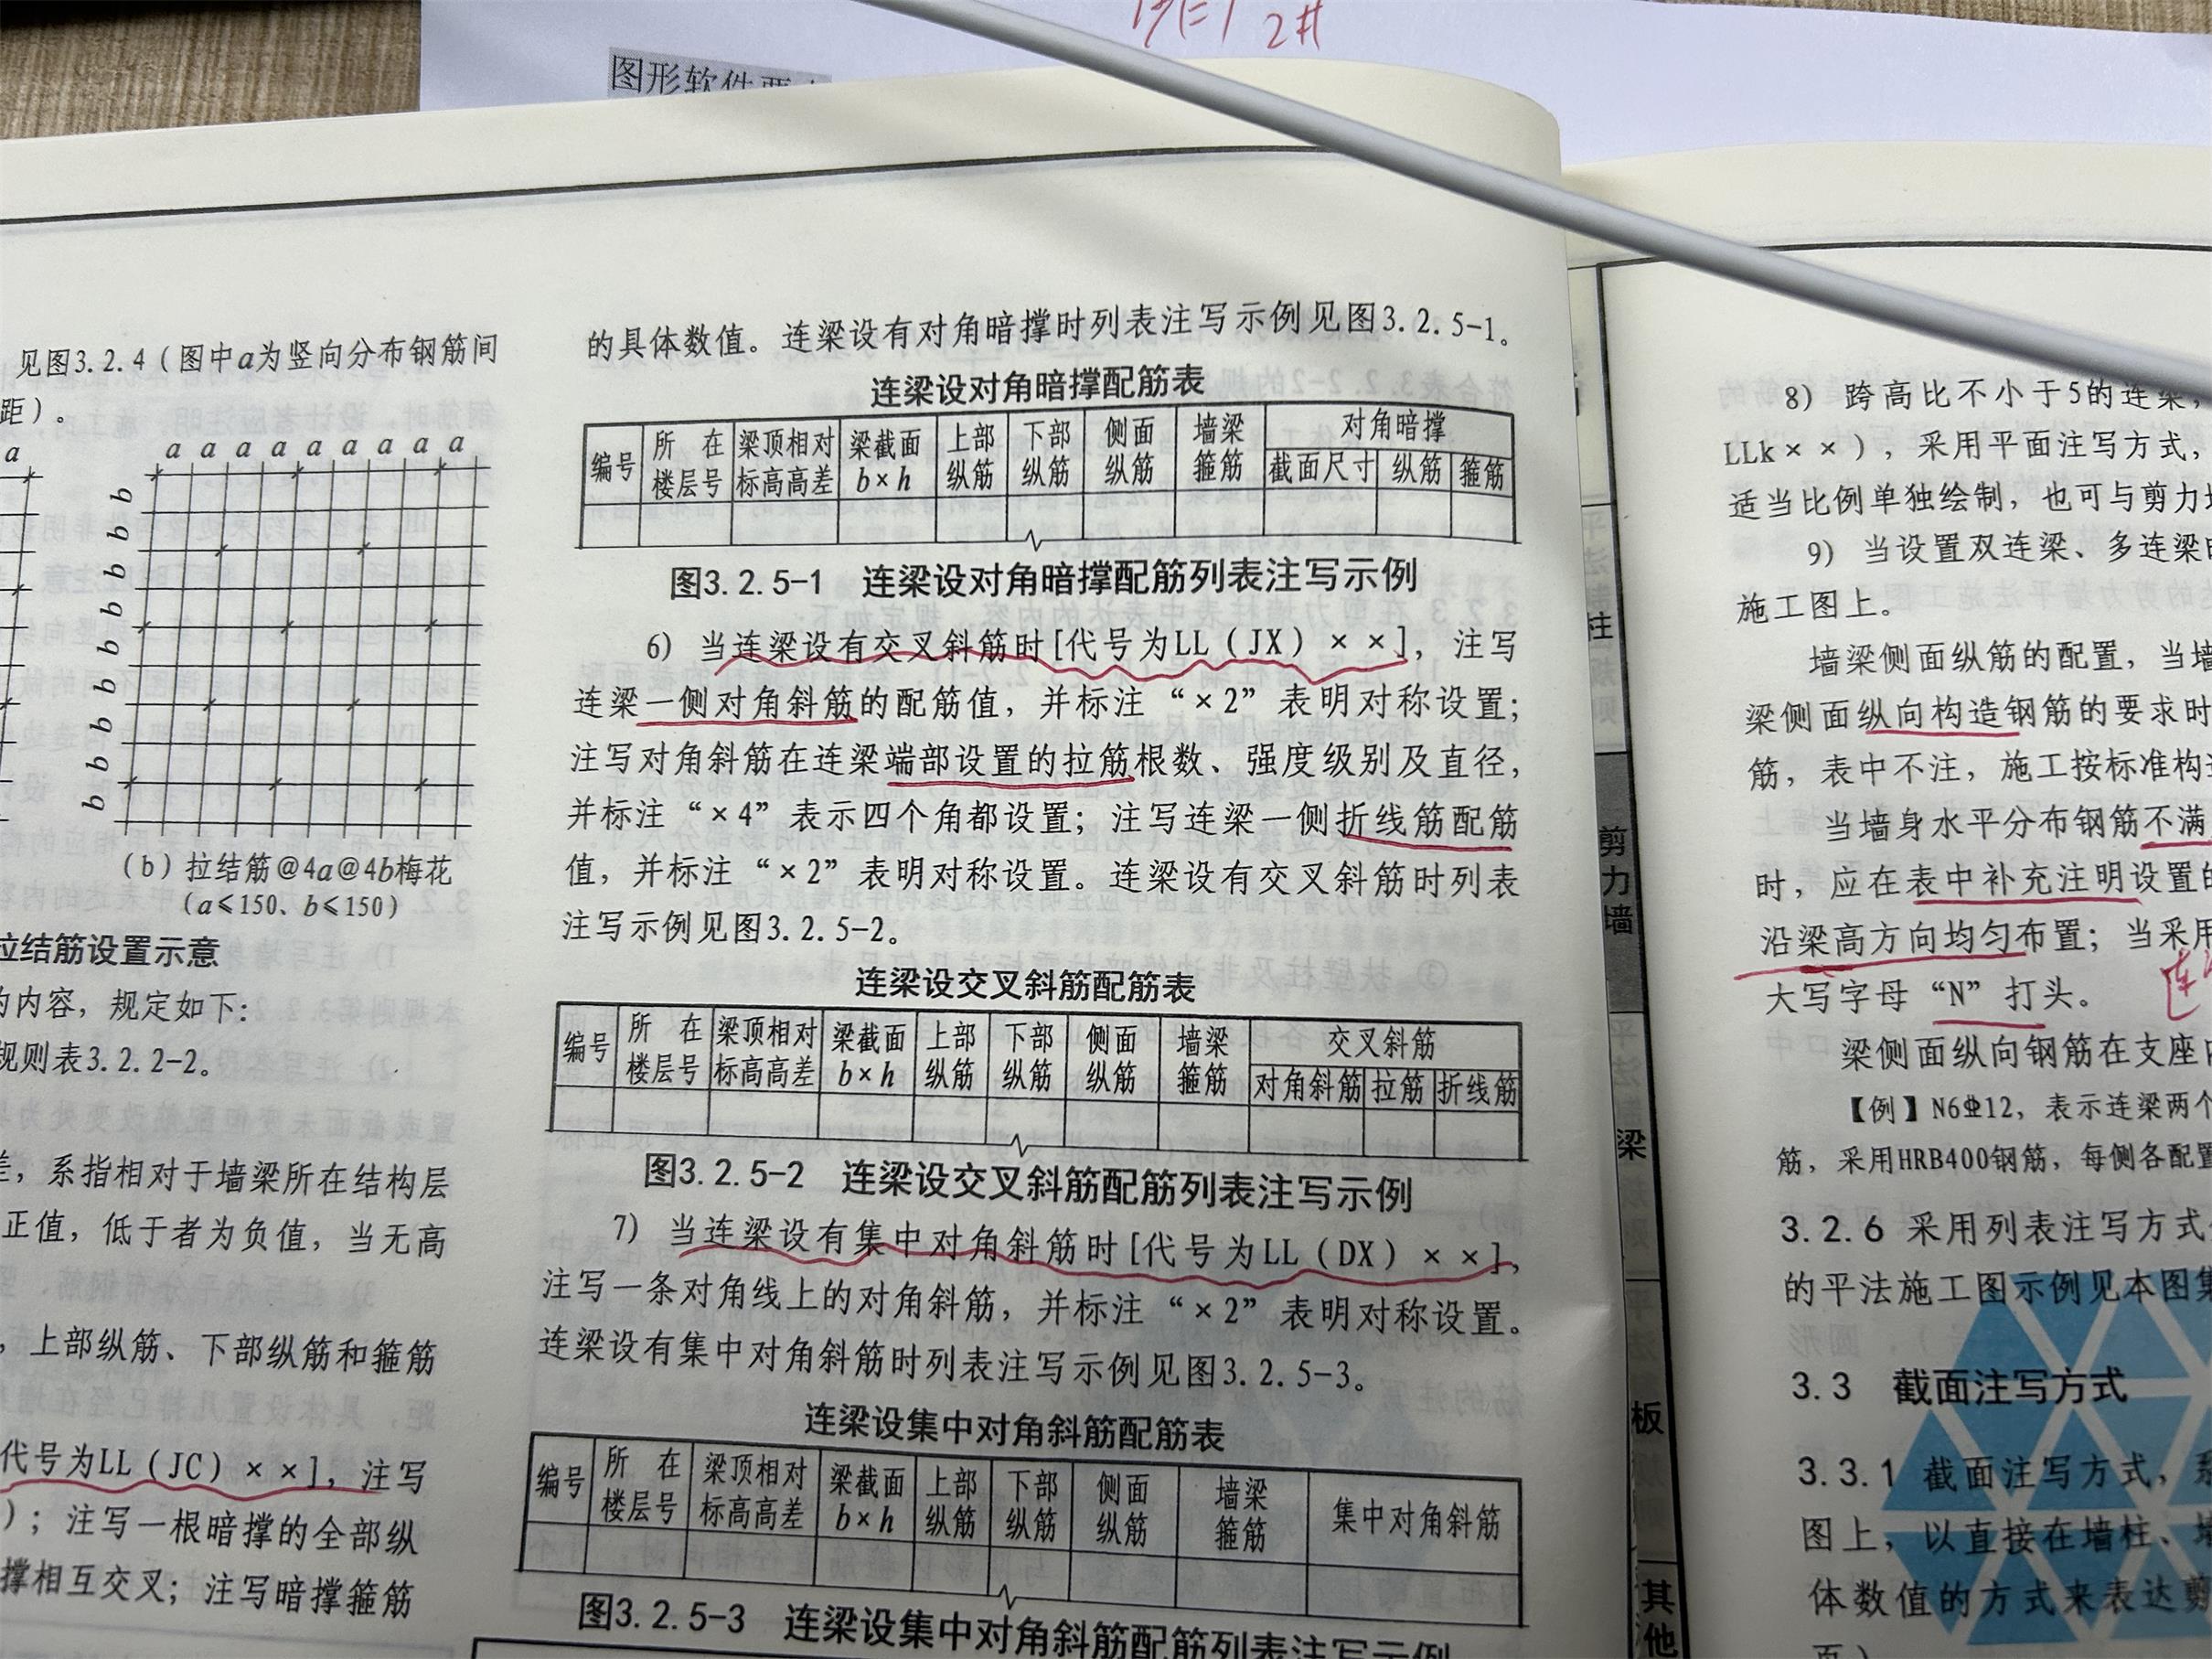 图形软件
2#
见图3.2.4(图中a为竖向分布钢筋间
距)。
a
a a a a a a a a a
b
b
b
b
b
b
b
b
b
(b)拉结筋@4a@4b梅花
(a≤150、b≤150)
拉结筋设置示意
的内容,规定如下:
规则表3.2.2-2。
差,系指相对于墙梁所在结构层
正值,低于者为负值,当无高
,上部纵筋、下部纵筋和箍筋
代号为LL(JC)××],注写
);注写一根暗撑的全部纵
撑相互交叉;注写暗撑箍筋
的具体数值。连梁设有对角暗撑时列表注写示例见图3.2.5-1。
连梁设对角暗撑配筋表
编号 所在楼层号 梁顶相对标高高差 梁截面b×h 上部纵筋 下部纵筋 侧面纵筋 墙梁箍筋 对角暗撑
截面尺寸 纵筋 箍筋
图3.2.5-1 连梁设对角暗撑配筋列表注写示例
6) 当连梁设有交叉斜筋时[代号为LL(JX)××],注写
连梁一侧对角斜筋的配筋值,并标注“×2”表明对称设置;
注写对角斜筋在连梁端部设置的拉筋根数、强度级别及直径,
并标注“×4”表示四个角都设置;注写连梁一侧折线筋配筋
值,并标注“×2”表明对称设置。连梁设有交叉斜筋时列表
注写示例见图3.2.5-2。
连梁设交叉斜筋配筋表
编号 所在楼层号 梁顶相对标高高差 梁截面b×h 上部纵筋 下部纵筋 侧面纵筋 墙梁箍筋 交叉斜筋
对角斜筋 拉筋 折线筋
图3.2.5-2 连梁设交叉斜筋配筋列表注写示例
7) 当连梁设有集中对角斜筋时[代号为LL(DX)××],
注写一条对角线上的对角斜筋,并标注“×2”表明对称设置。
连梁设有集中对角斜筋时列表注写示例见图3.2.5-3。
连梁设集中对角斜筋配筋表
编号 所在楼层号 梁顶相对标高高差 梁截面b×h 上部纵筋 下部纵筋 侧面纵筋 墙梁箍筋 集中对角斜筋
图3.2.5-3 连梁设集中对角斜筋配筋列表注写示例
柱
剪力墙
梁
板
其他
8) 跨高比不小于5的连梁,
LLk××),采用平面注写方式,
适当比例单独绘制,也可与剪力
9) 当设置双连梁、多连梁
施工图上。
墙梁侧面纵筋的配置,当墙
梁侧面纵向构造钢筋的要求时
筋,表中不注,施工按标准构
当墙身水平分布钢筋不满
时,应在表中补充注明设置的
沿梁高方向均匀布置;当采用
大写字母“N”打头。
梁侧面纵向钢筋在支座
【例】N6⌀12,表示连梁两个
筋,采用HRB400钢筋,每侧各配置
3.2.6 采用列表注写方式
的平法施工图示例见本图集
3.3 截面注写方式
3.3.1 截面注写方式,系
图上,以直接在墙柱、墙
体数值的方式来表达剪
面)